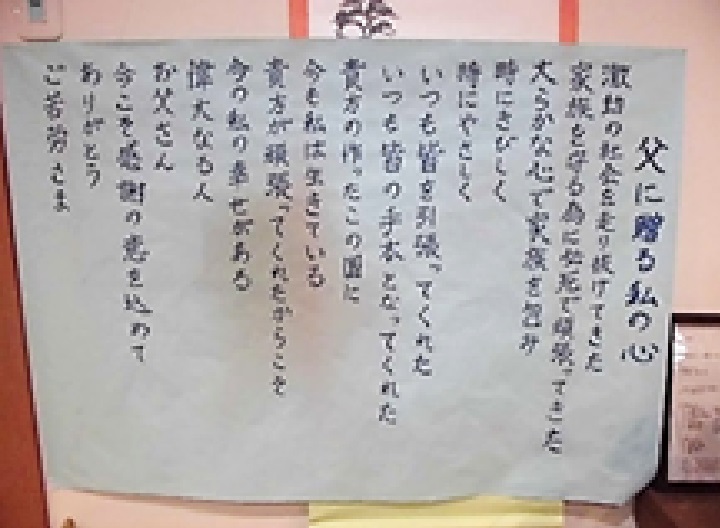 父に贈る私の心
激動の社会を走り抜けてきた
家族を守る為に必死で頑張ってきた
大らかな心で家族を包み
時にきびしく
時にやさしく
いつも皆を引張ってくれた
いつも皆の手本となってくれた
貴方の作ったこの国に
今も私は生きている
貴方が頑張ってくれたからこそ
今の私の幸せがある
偉大なる人
お父さん
今こそ感謝の意を込めて
ありがとう
ご苦労さま